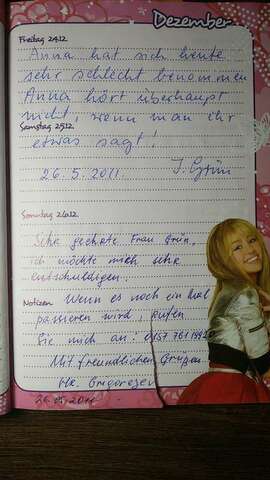 Dezember
Freitag 24.12
Anna hat sich heute
sehr schlecht benommen
Anna hört überhaupt
nicht, wenn man ihr
Samstag 25.12
etwas sagt!
26.5.2011 I. Grün
Sonntag 26.12
Sehr geehrte Frau Grün,
ich möchte mich sehr
entschuldigen.
Notizen Wenn es noch ein Mal
passieren wird, rufen
Sie mich an: 0157 761
Mit freundlichen Grüßen